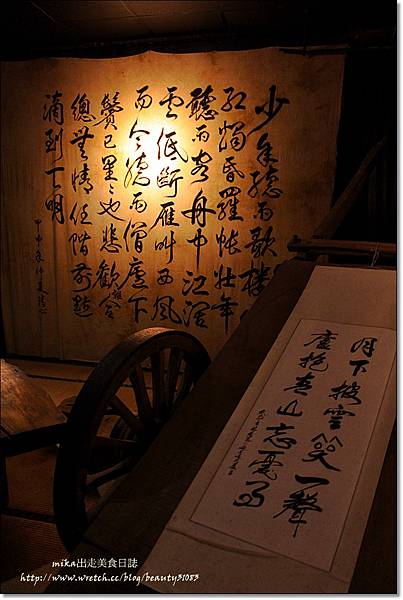 少年聽雨歌樓
紅燭昏羅帳壯年
聽雨客舟中江闊
雲低斷雁叫西風
而今聽雨僧廬下
鬢已星星也悲歡離合
總無情任階前點
滴到丁明
甲申年仲夏
月下披雲笑一聲
廬抱山忘
mika出走美食日誌
http://www.wretch.cc/blog/beauty31083